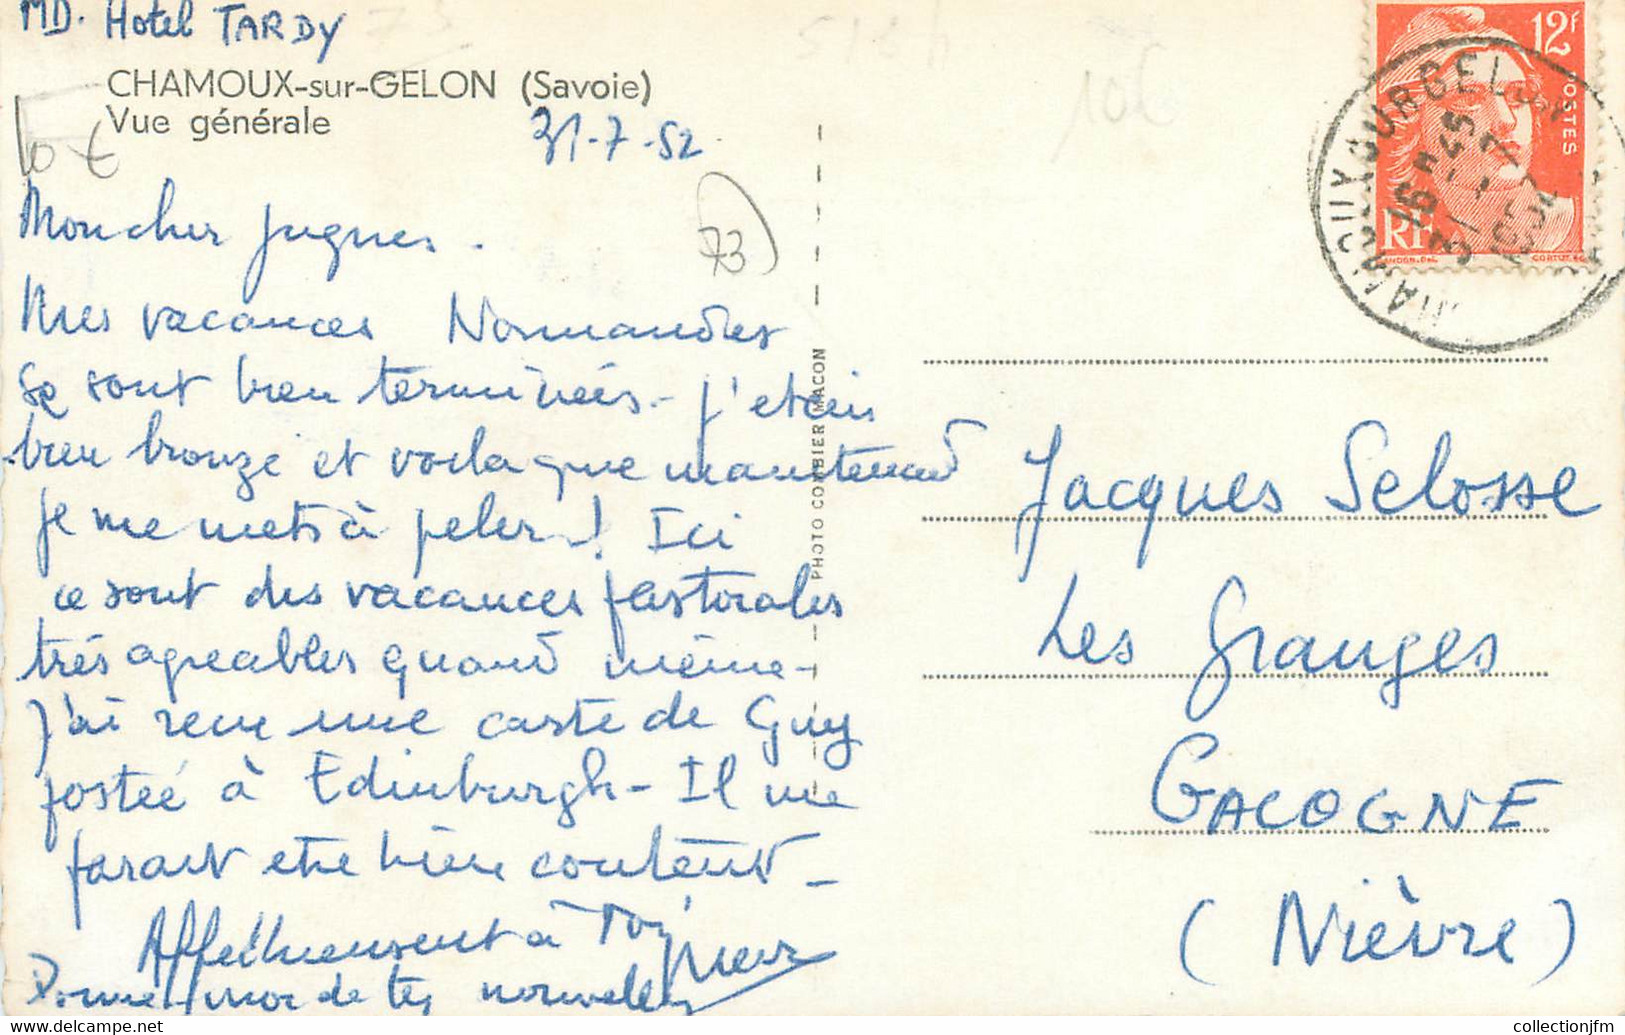 MD. Hotel TARDY
CHAMOUX-sur-GELON (Savoie)
Vue générale
31-7-52
10 €
73
Mon cher Jacques.
Mes vacances Normandes
se sont bien terminées - j'étais
bien bronzé et voila que maintenant
je me mets à peler ! Ici
ce sont des vacances pastorales
très agréables quand même -
J'ai reçu une carte de Guy
postée à Edinburgh - Il me
parait etre bien content -
Affectueusement à toi
Donne-moi de tes nouvelles
PHOTO COMBIER MACON
12F
POSTES
RF
GANDON.DEL
CORTOT.SC
CHAMOUX SUR GELON
16H45
31-7
1952
Jacques Selosse
Les Granges
GACOGNE
(Nièvre)
collectionjfm